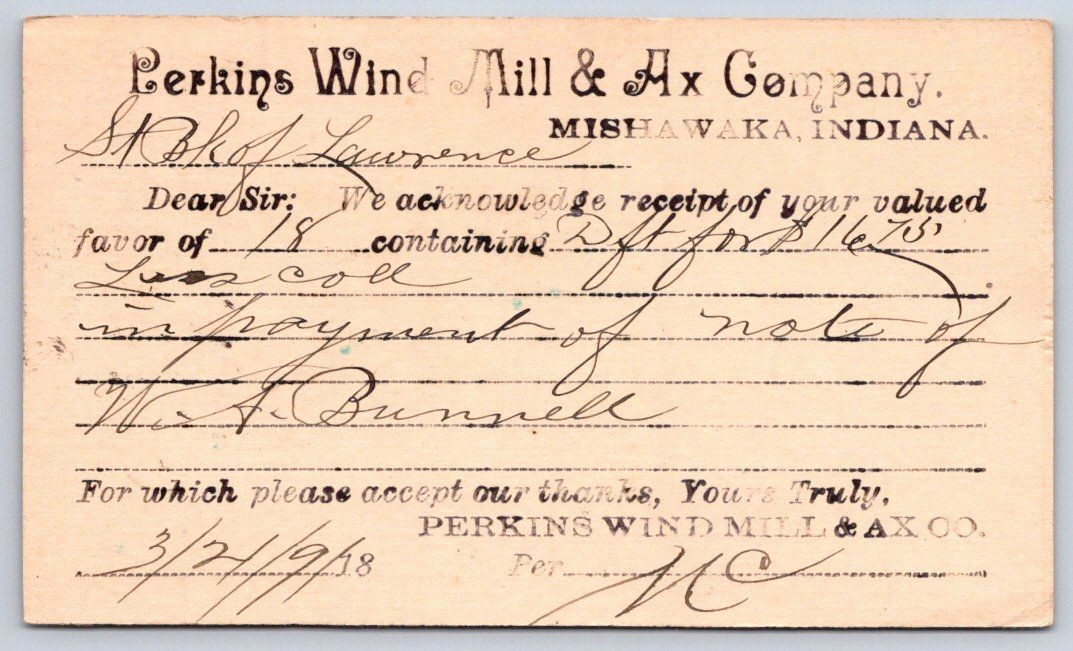 Perkins Wind Mill & Ax Company.
MISHAWAKA, INDIANA.
St Bk of Lawrence
Dear Sir: We acknowledge receipt of your valued
favor of 18 containing Dft for $16.75
Less coll
in payment of note of
W. A. Bunnell
For which please accept our thanks, Yours Truly,
PERKINS WIND MILL & AX CO.
18 Per